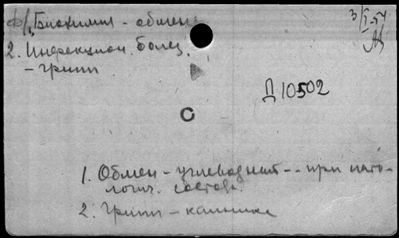 Биохимия - обмен
2. Инфекцион. болез.
- грипп
Д 10502
С
1. Обмен - углеводный -- при пато-
логич. состоян.
2. Грипп - клиника